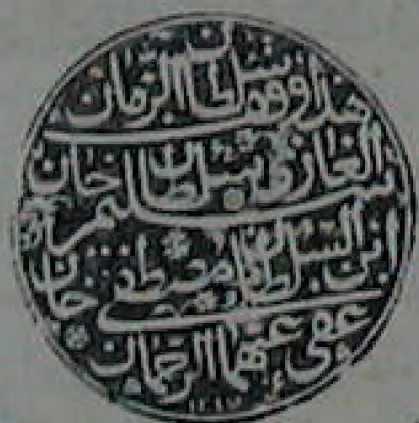 قد اوقف سلطان الزمان
الغازي سلطان سليم خان
ابن السلطان مصطفى خان
عفى عنهما الرحمان